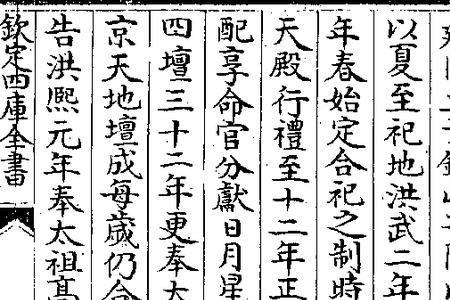 以夏至祀地洪武二年
年春始定合祀之制時
天殿行禮至十二年正
配享命官分獻日月星
四壇三十二年更奉太
京天地壇成每歲仍合
告洪熙元年奉太祖高
欽定四庫全書